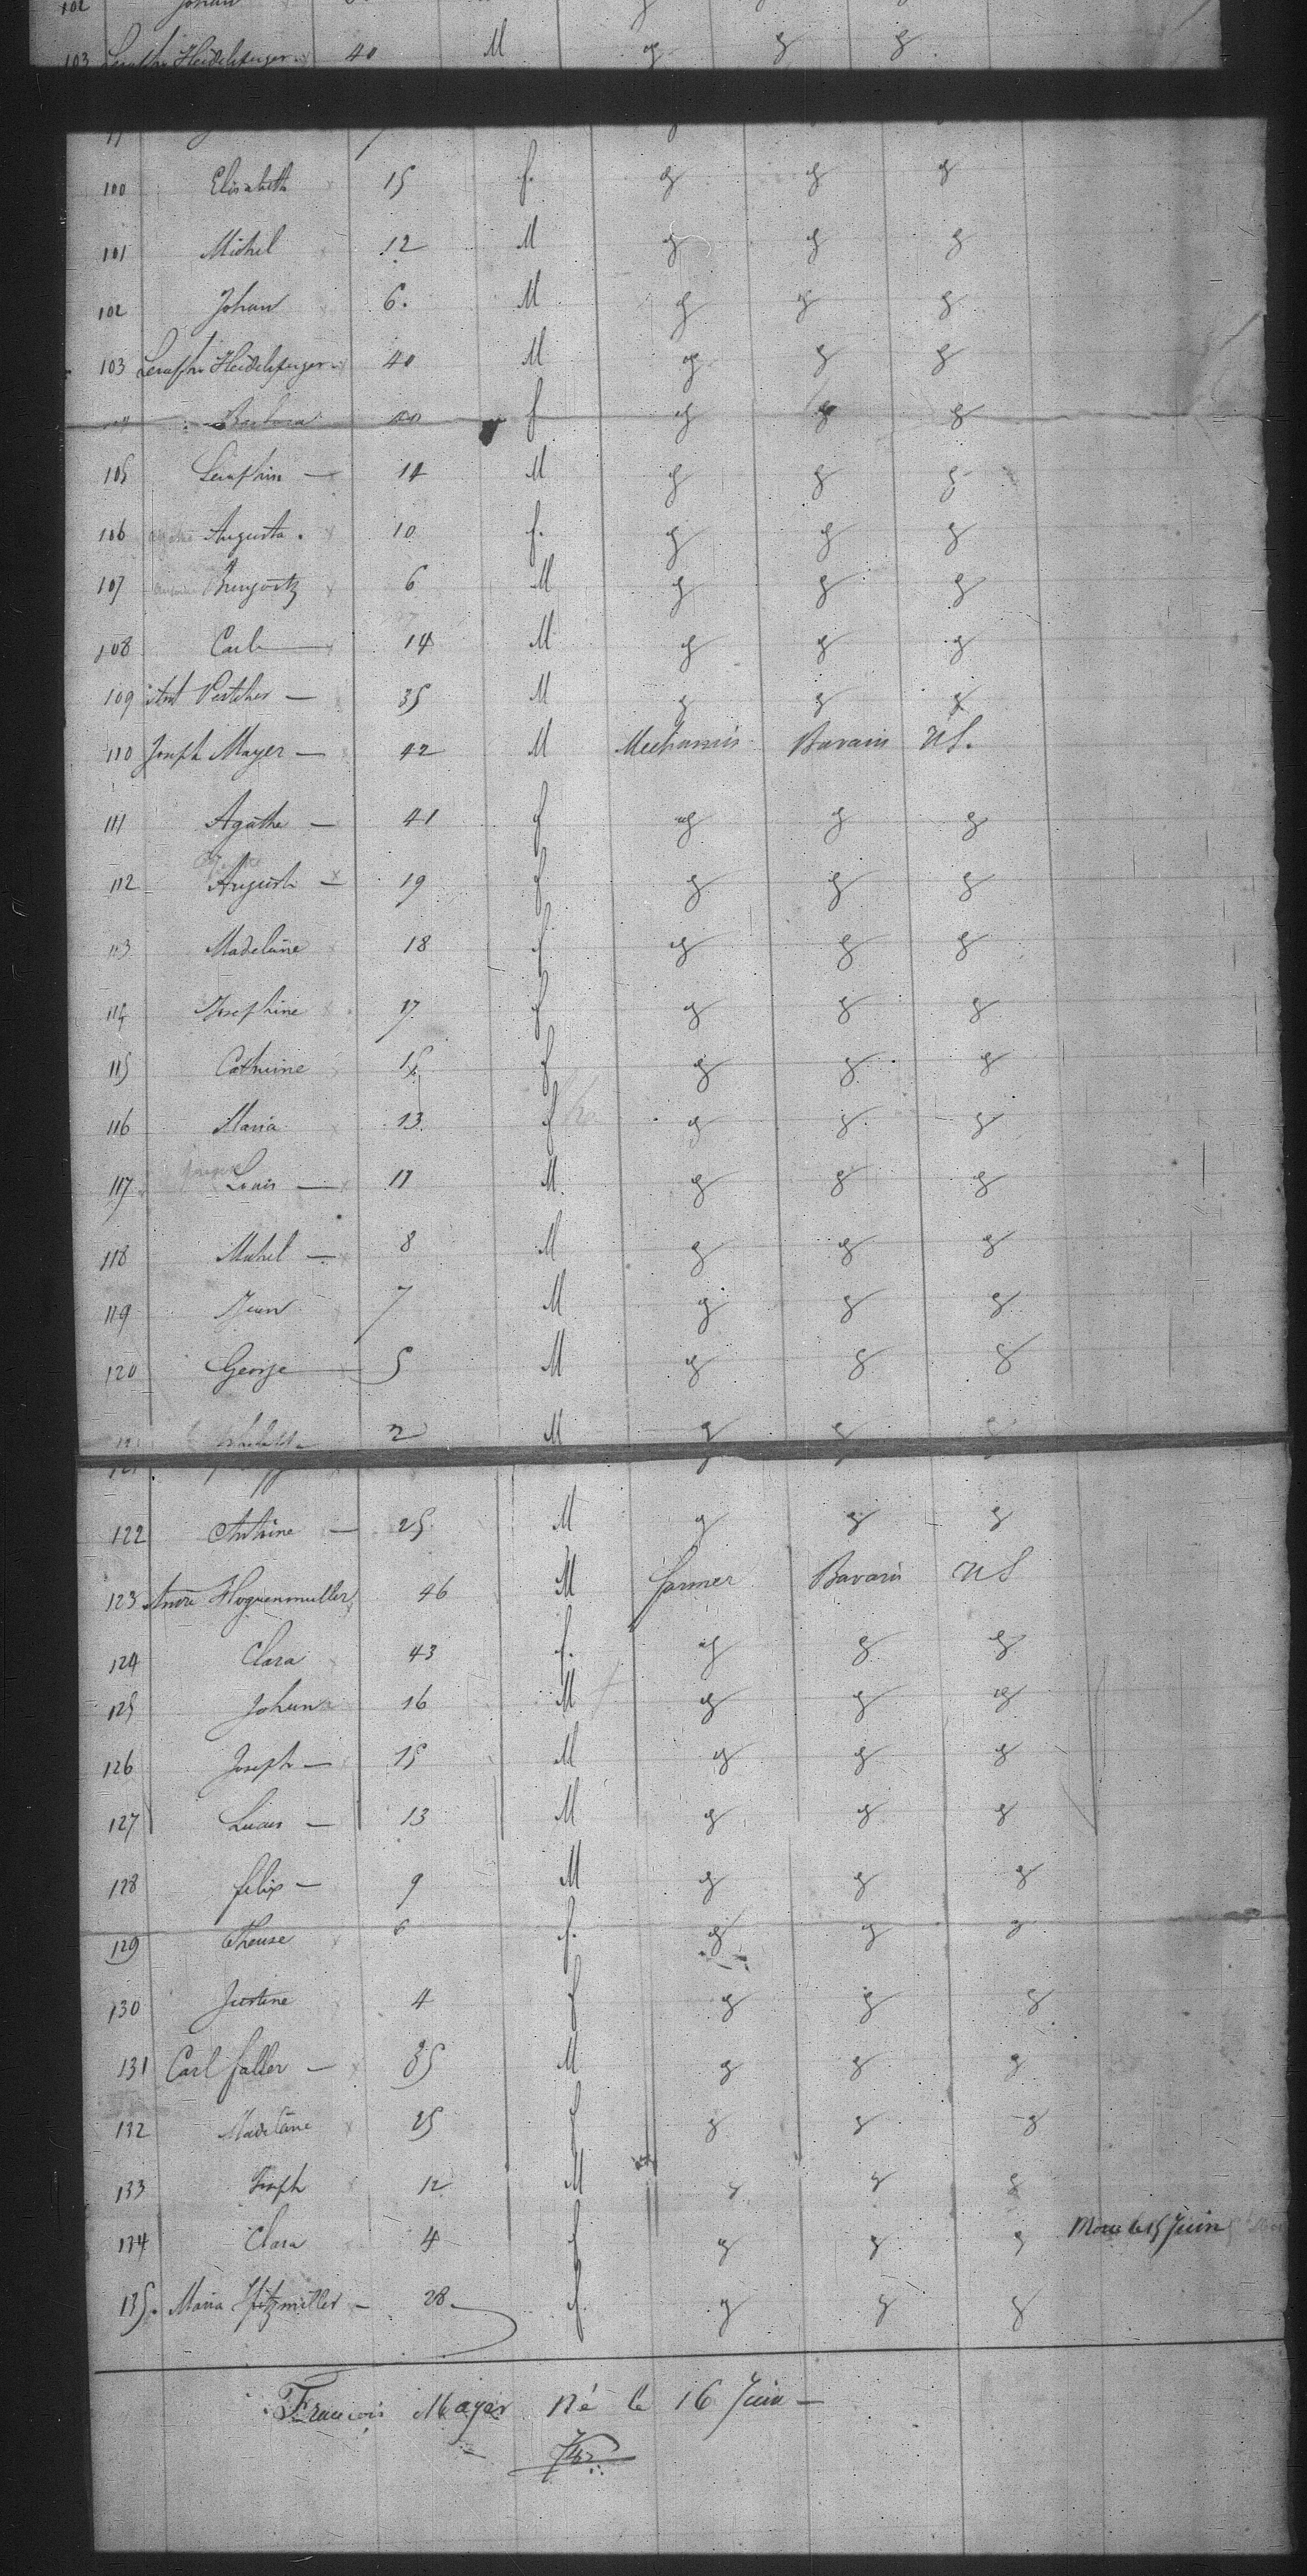 102 Johan
103 Seraphin Heidelsperger 40 M g g g
100 Elisabeth 15 f. g g g
101 Michel 12 M g g g
102 Johan 6. M g g g
103 Seraphin Heidelsperger 40 M g g g
Barbara 40 f g g g
105 Seraphin — 14 M g g g
106 Augusta . 10 f. g g g
107 6 M g g g
108 Carl — 14 M g g g
109 35 M g g g
110 Joseph Mayer — 42 M Mechanis Bavaris US.
111 Agathe — 41 f g g g
112 Augusta — 19 f g g g
113 Madelaine 18 f g g g
114 Josephine 17 f g g g
115 Catherine 15 f g g g
116 Maria 13 f g g g
117 Louis — 11 M g g g
118 Michel — 8 M g g g
119 Jean 7 M g g g
120 George — 5 M g g g
2 M g g g
122 Antoine — 25 M g g g
123 Andre Hoguenmuller 46 M farmer Bavaris US
124 Clara 43 f. g g g
125 Johan 16 M g g g
126 Joseph — 15 M g g g
127 Lucas — 13 M g g g
128 felix — 9 M g g g
129 Therese 6 f. g g g
130 Justine 4 f g g g
131 Carl faller — 35 M g g g
132 Madelaine 25 f g g g
133 Joseph 12 M g g g
134 Clara 4 f g g g Morte le 15 Juin
135. Maria Hitzmiller — 28 f g g g
Francois Mayer Né le 16 Juin —